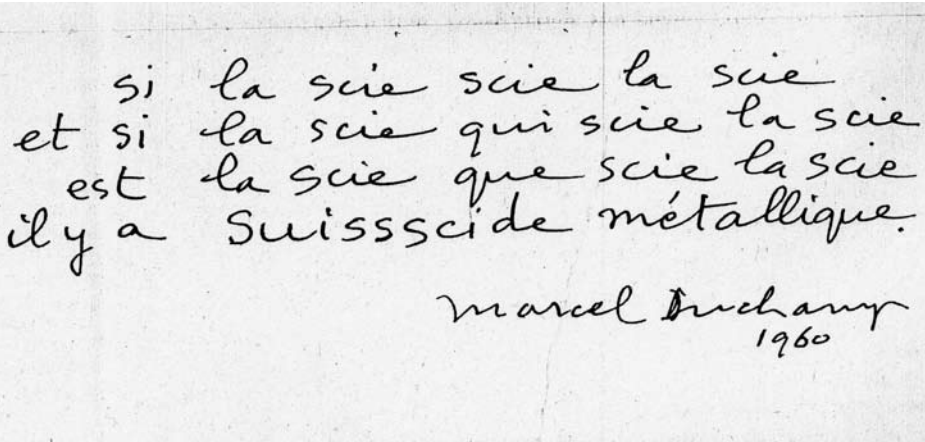 si la scie scie la scie
et si la scie qui scie la scie
est la scie que scie la scie
il y a Suissscide métallique.
Marcel Duchamp
1960